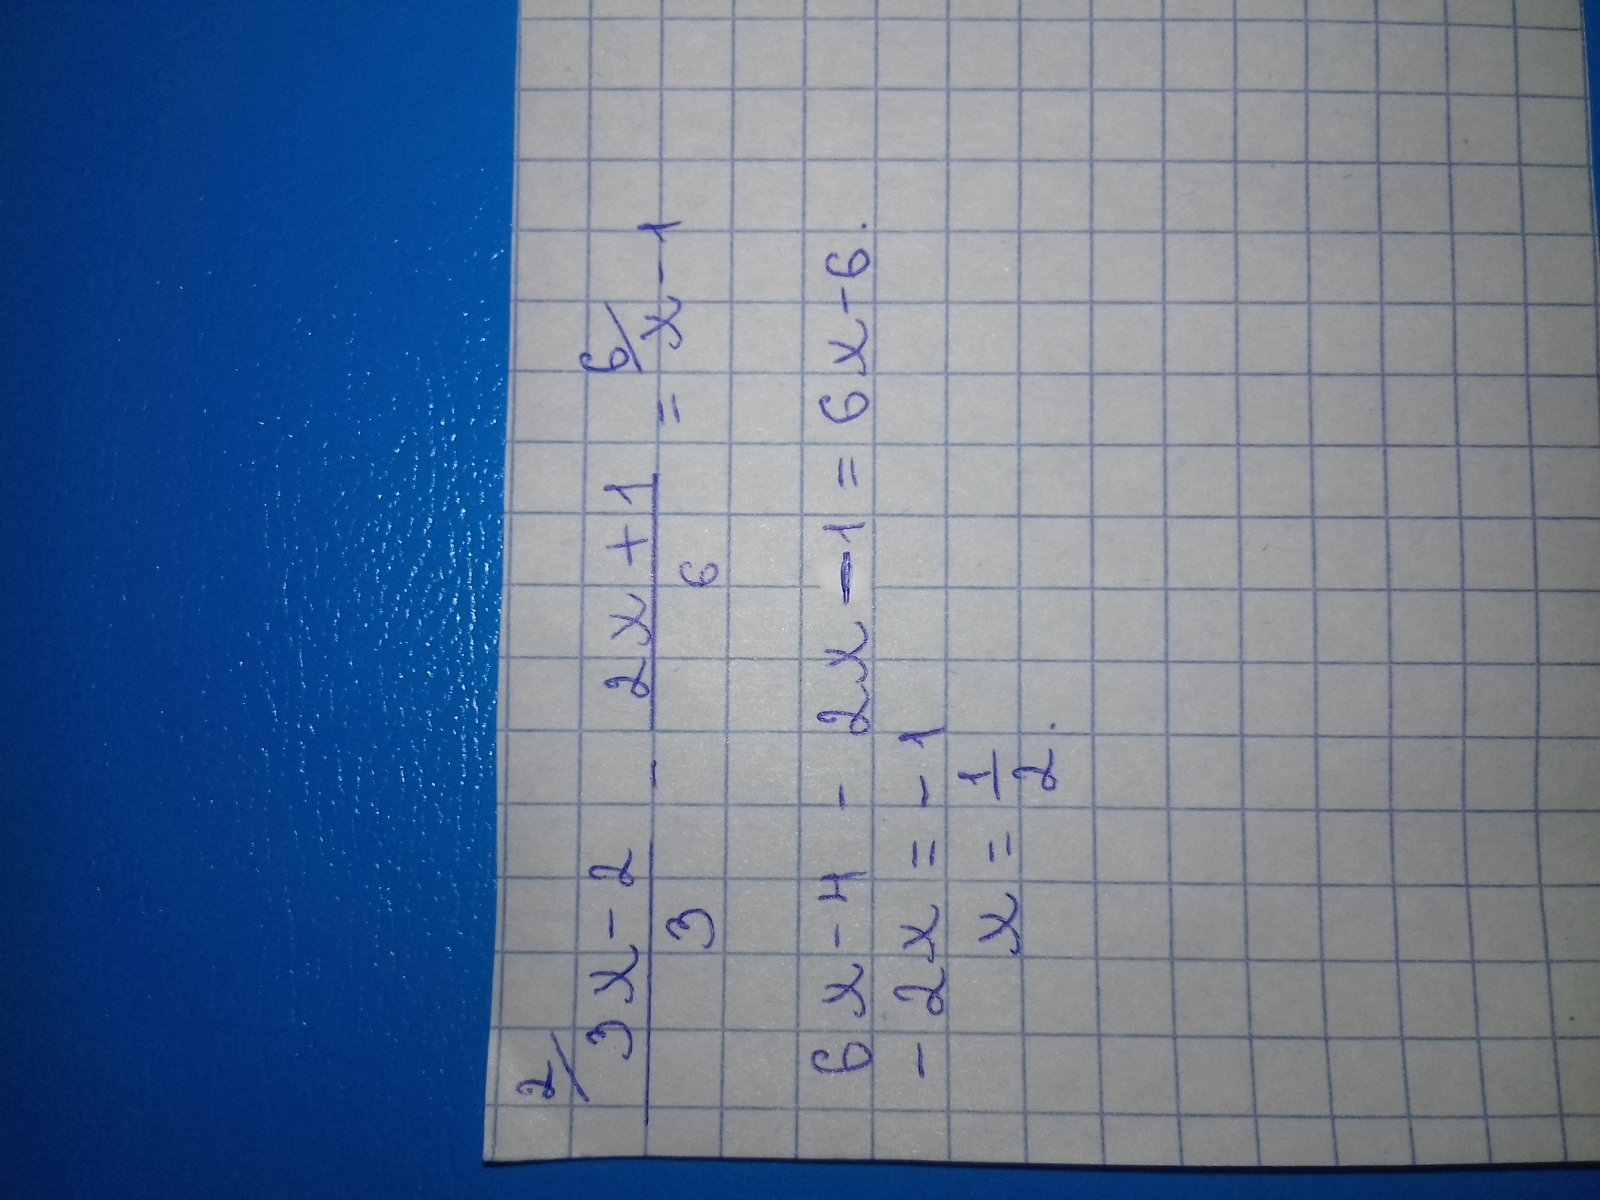 2/ 3x-2 / 3 - 2x+1 / 6 = 6/ x-1
6x-4 - 2x-1=6x-6.
-2x=-1
x=1/2.